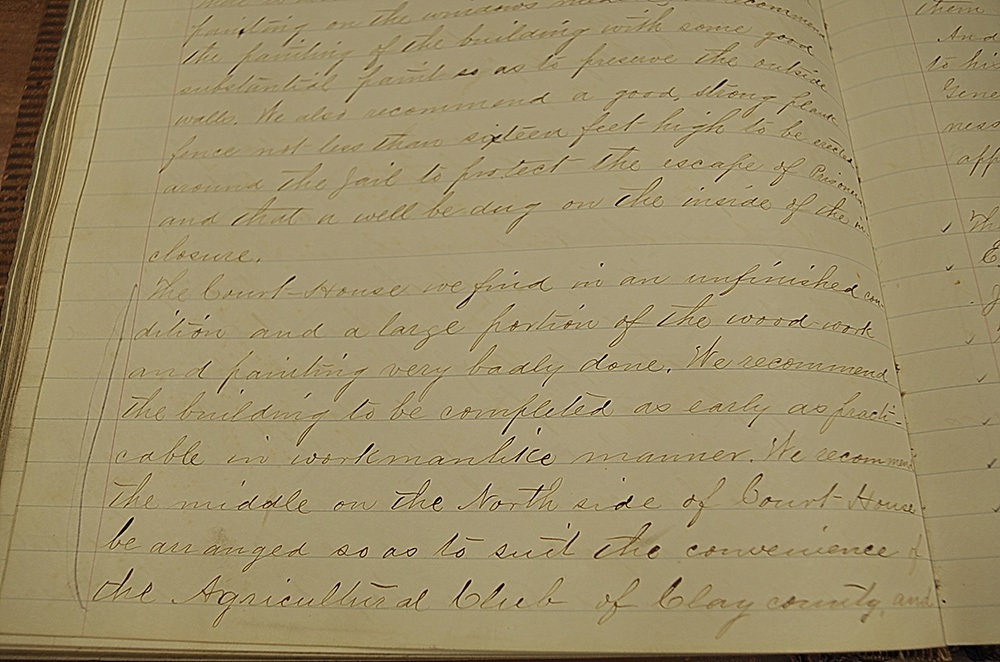 painting, on the windows
the painting of the building with some good
substantial paint so as to preserve the outside
walls. We also recommend a good, strong plank
fence not less than sixteen feet high to be erected
around the jail to protect the escape of Prisoners
and that a well be dug on the inside of the in
closure.
The Court-House we find in an unfinished con
dition and a large portion of the wood-work
and painting very badly done. We recommend
the building to be completed as early as practi-
cable in workmanlike manner. We recommend
the middle on the North side of Court House
be arranged so as to suit the convenience of
the Agricultural Club of Clay county, and
them
And
to his
Gene
ness
app